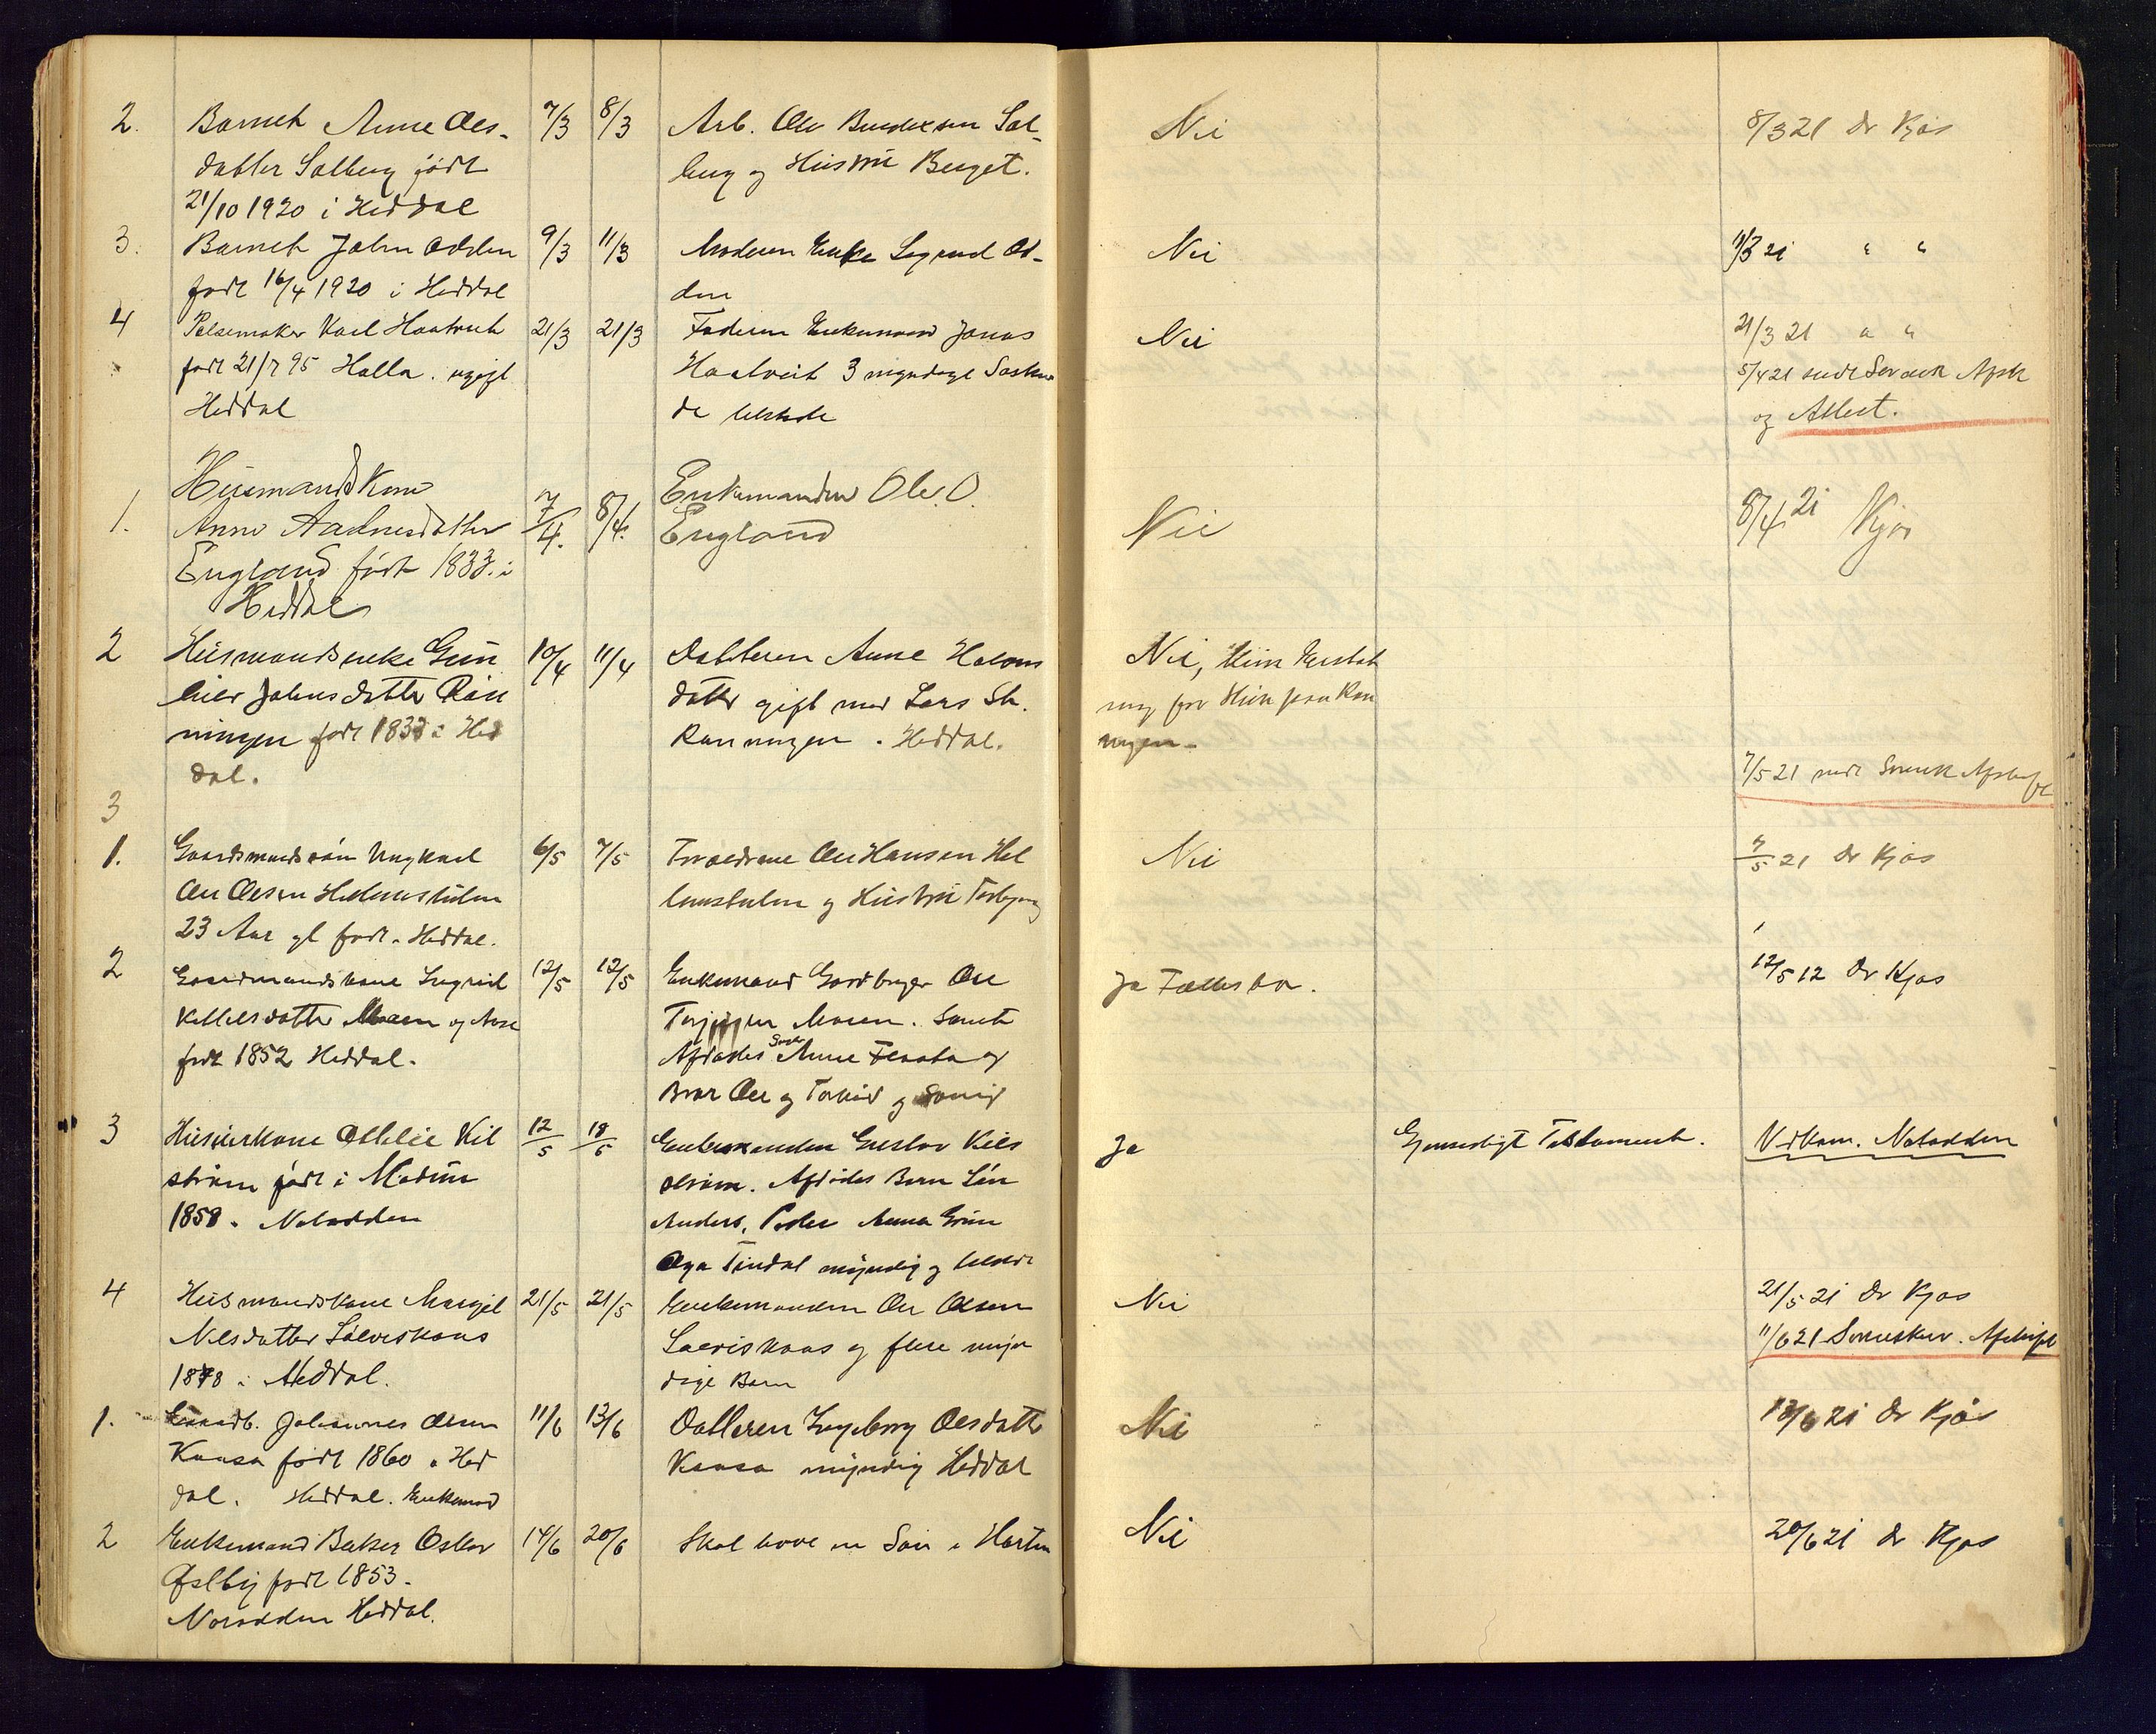 2. Barnet Anne Oles- 7/3 8/3 Arb. Ole Bendixsen Sol- Nei 8/3 21 Dr Kjos
datter Solberg født berg og Hustru Berget.
21/10 1920 i Heddal
3. Barnet John Odden 9/3 11/3 Moderen Enke Sigrud Od- Nei 11/3 21 " "
født 16/4 1920 i Heddal den
4 Pølsemaker Karl Haatveit 21/3 21/3 Faderen Enkemand Jonas Nei 21/3 21 " "
født 21/7 95 Holla. ugift Haatveit 3 myndige Søsken 5/4 21 sendt Sorensk Afsk
Heddal de og Attest.
Husmandskone Enkemanden Ole O.
1. Anne Aadnesdatter 7/4. 8/4. England Nei 8/4 21 Kjos
England født 1833 i
Heddal
2 Husmandsenke Gun 10/4 11/4 Datteren Anne Halvors Nei,
hild Johnsdatter Røn datter gift med Lars St. ning for
ningen født 1837 i Hed Rønningen. Heddal. ningen.
dal.
7/5 21 sendt Sorensk Afskrift
3
1. Gaardmandssøn Ungkarl 6/5 7/5 Forældrene Ole Hansen Hel Nei 7/5 21 Dr Kjos
Ole Olsen og Hustru Torbjørg
23 Aar gl født. Heddal.
2 Gaardmandskone Ingrid 12/5 12/5 Enkemand Gaardbruger Ole Ja Fællesbo. 12/5 12 Dr Kjos
Kittilsdatter Moen og Aase Moen. Samt
født 1852 Heddal. Afdødes Anne og
Bror Ole og
3 Husmandskone Othilie Kil 12/5 18/5 Enkemanden Gustav Kils Ja Gjensidigt Testament. Vidkom. Notodden
strøm født i Modum strøm. Afdødes Børn Søn
1858. Notodden Anders, Peder Anna
Tindal myndig og
4 Husmandskone Margit 21/5 21/5 Enkemanden Ole Olsen Nei 21/5 21 Dr Kjos
Nilsdatter Sølveskaas Sølveskaas og flere myn 11/6 21 Sorenskr. Afskrift
1878 i Heddal. dige Børn
1. Gaardb. Johannes Olsen 11/6 13/6 Datteren Ingeborg Olesdatter Nei 13/6 21 Dr Kjos
Kaasa født 1860 i Hed Kaasa myndig Heddal
dal. Heddal. Enkemand
2 Enkemand Baker Oskar 14/6 20/6 Skal have en Søn i Horten Nei 20/6 21 Dr Kjos
Østby født 1853.
Notodden Heddal.